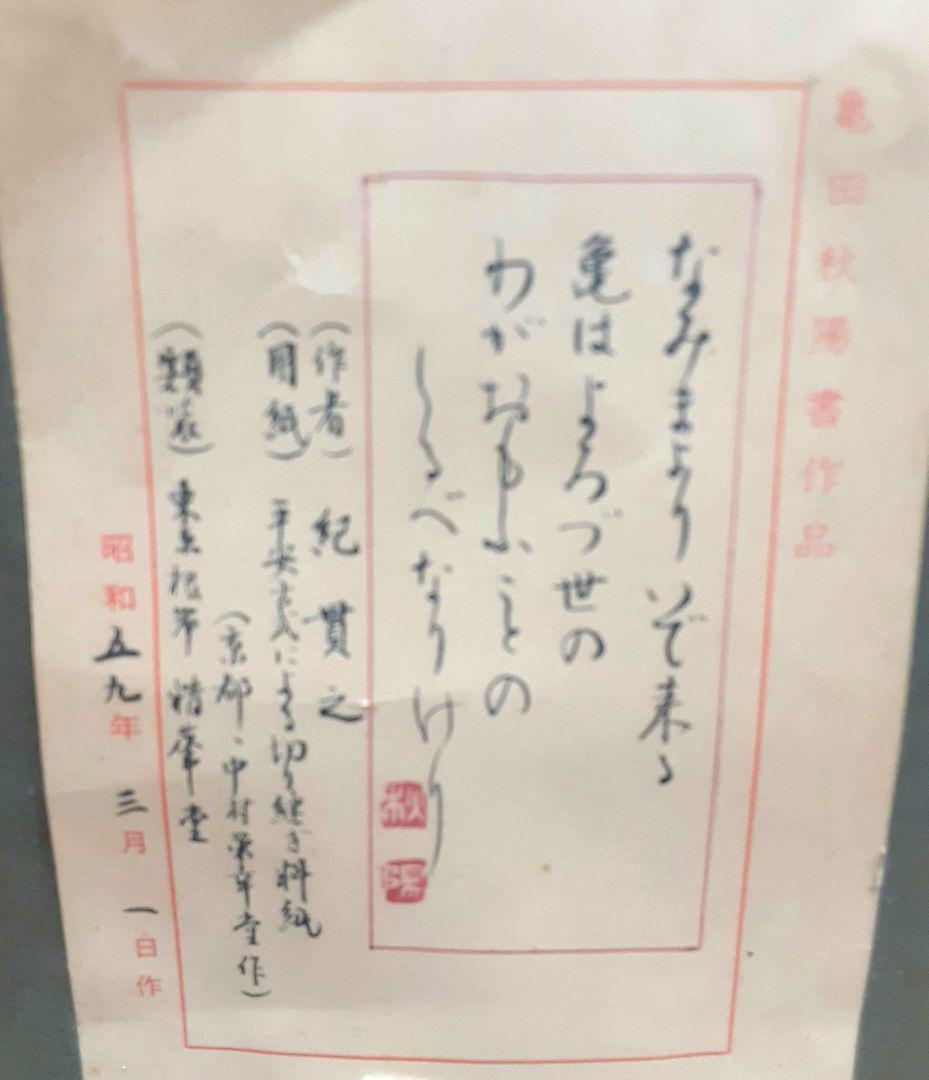 亀田秋陽書作品
なみまより いで来る
亀はよろづ世の
わがおもふことの
しるべなりけり
秋陽
(作者) 紀貫之
(用紙) 平安式による切り継ぎ料紙
(京都・中村栄年堂作)
東京
堂
昭和五九年 三月 一日作